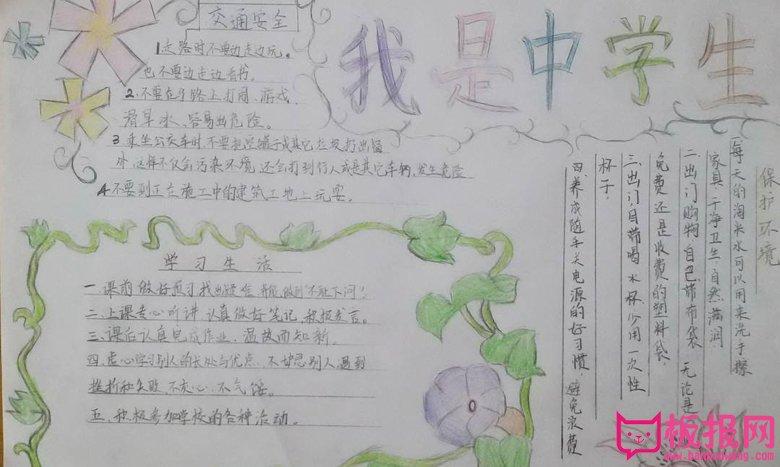 我是中学生
交通安全
1走路时不要边走边玩。
也不要边走边看书。
2.不要在马路上打闹、游戏、
滑旱冰、容易出危险。
3乘坐公交车时不要把瓶罐子或其它垃圾扔出窗
外这样不仅会污染环境还会打到行人或是其它车辆,发生危险
4.不要到正在施工中的建筑工地上玩耍。
学习生活
一课前做好预习找出疑
做到不耻下问!
二.上课专心听讲认真做好笔记,积极发言。
三.课后认真完成作业,温故而知新。
四.虚心学习别人的长处与优点,不妒忌别人遇到
挫折和失败不灰心,不气馁。
五.积极参加学校的各种活动。
保护环境
一每天的淘米水可以用来洗手擦
家具,干净卫生,自然滋润
二.出门购物,自己带布袋 无论是
免费还是收费的塑料袋.
三.出门自带喝水杯少用一次性
杯子.
四养成随手关电源的好习惯 避免浪费
板报网